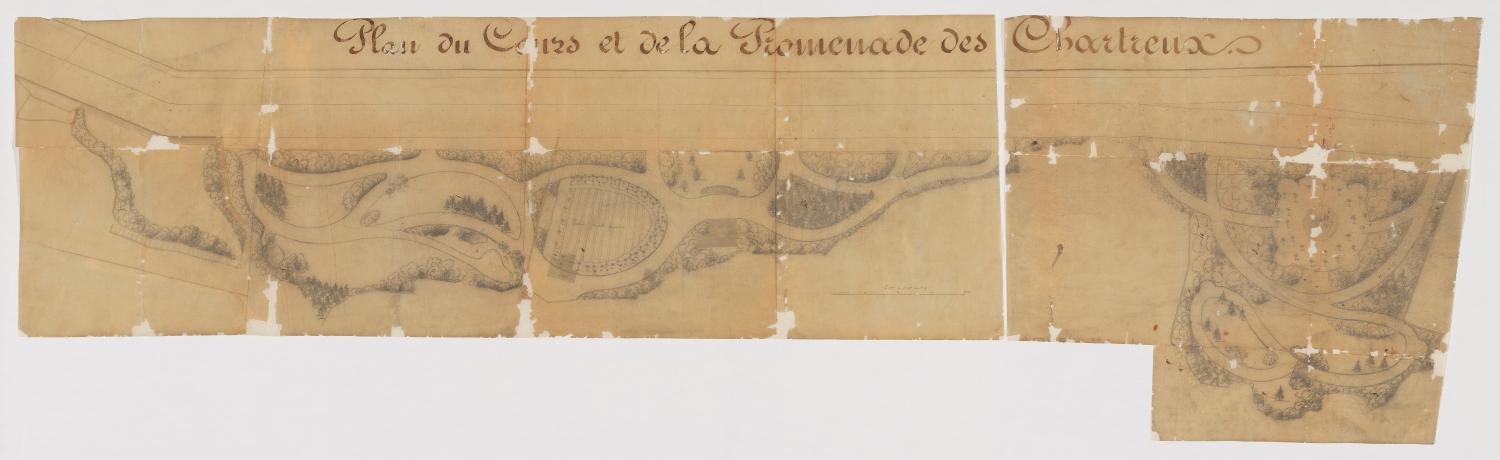 Plan du Cours et de la Promenade des Chartreux